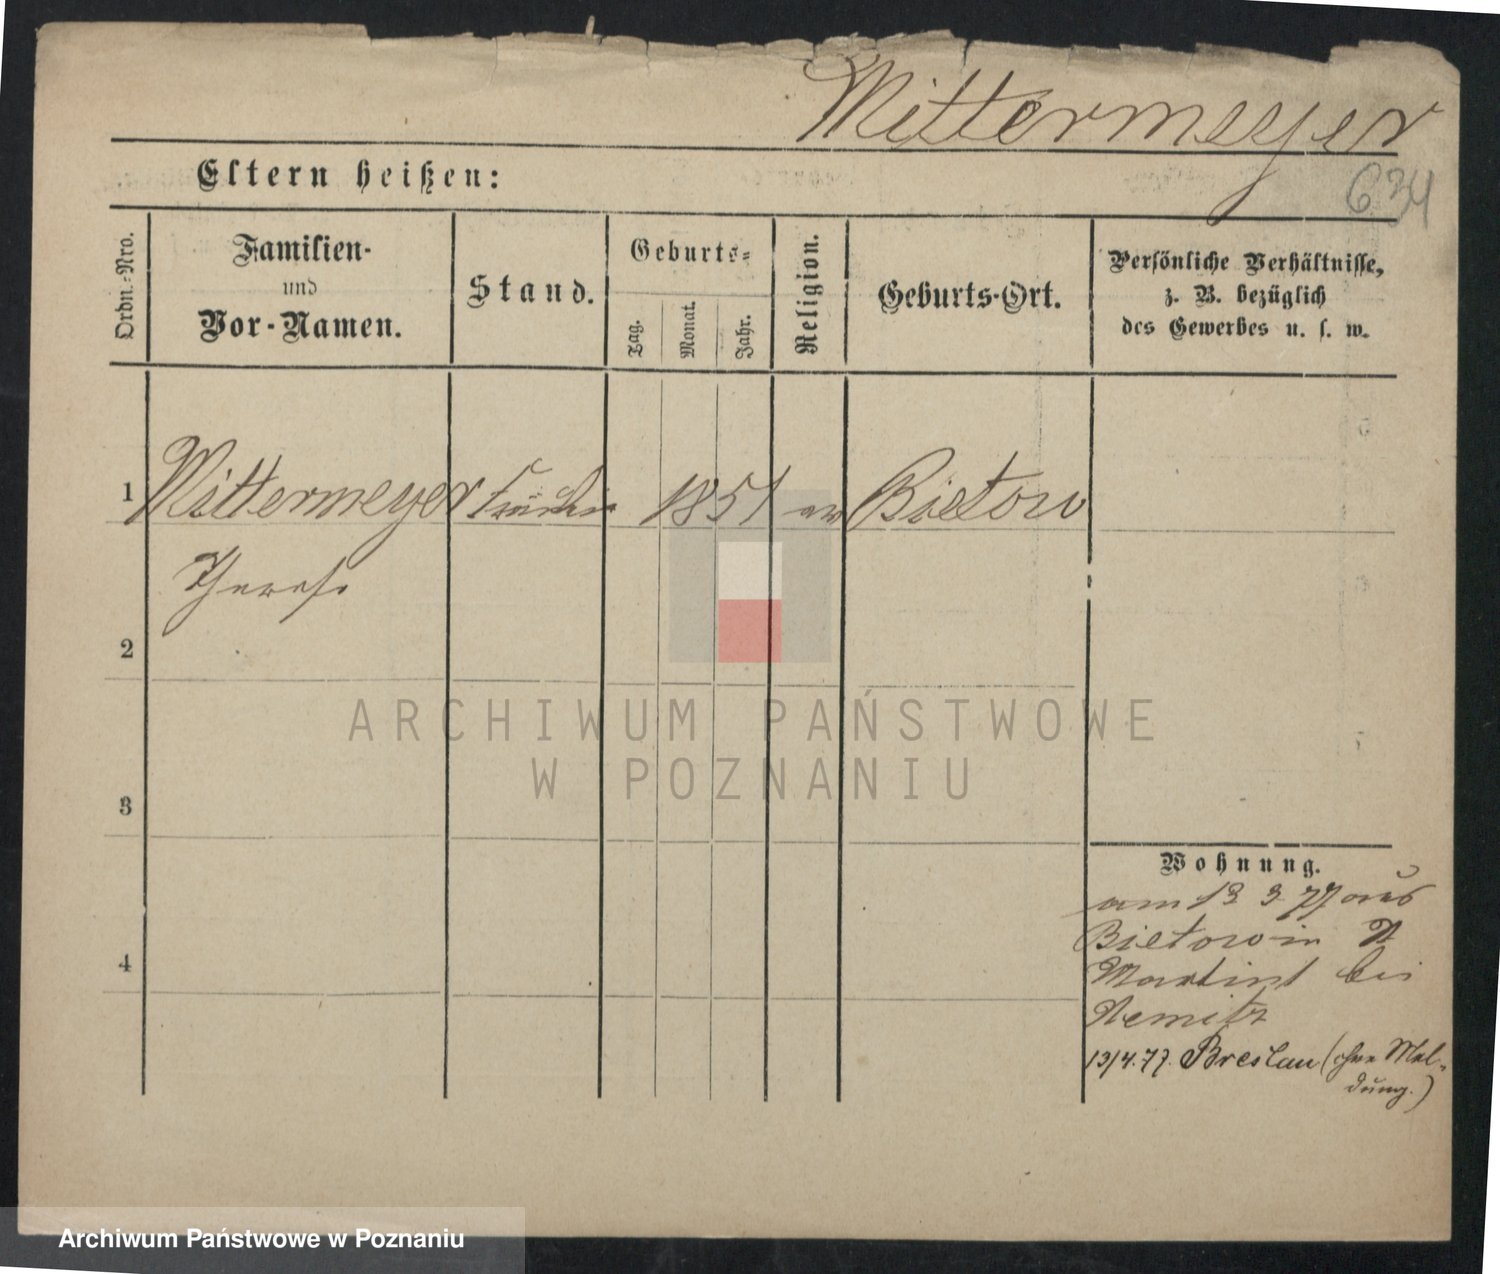 Mittermeyer
634
Eltern heißen:
Ordn.-Nro.
Familien-
und
Vor-Namen.
Stand.
Geburts-
Tag.
Monat.
Jahr.
Religion.
Geburts-Ort.
Persönliche Verhältnisse,
z. B. bezüglich
des Gewerbes u. s. w.
1 Mittermeyer 1851 ev Bietow
Therese
2
ARCHIWUM PAŃSTWOWE
W POZNANIU
3
Wohnung.
am 13 3 77 aus
Bietow in St
Martin 1 bei
Nemitz
4
13/4.77. Breslau (ohne Mel-
dung.)
Archiwum Państwowe w Poznaniu